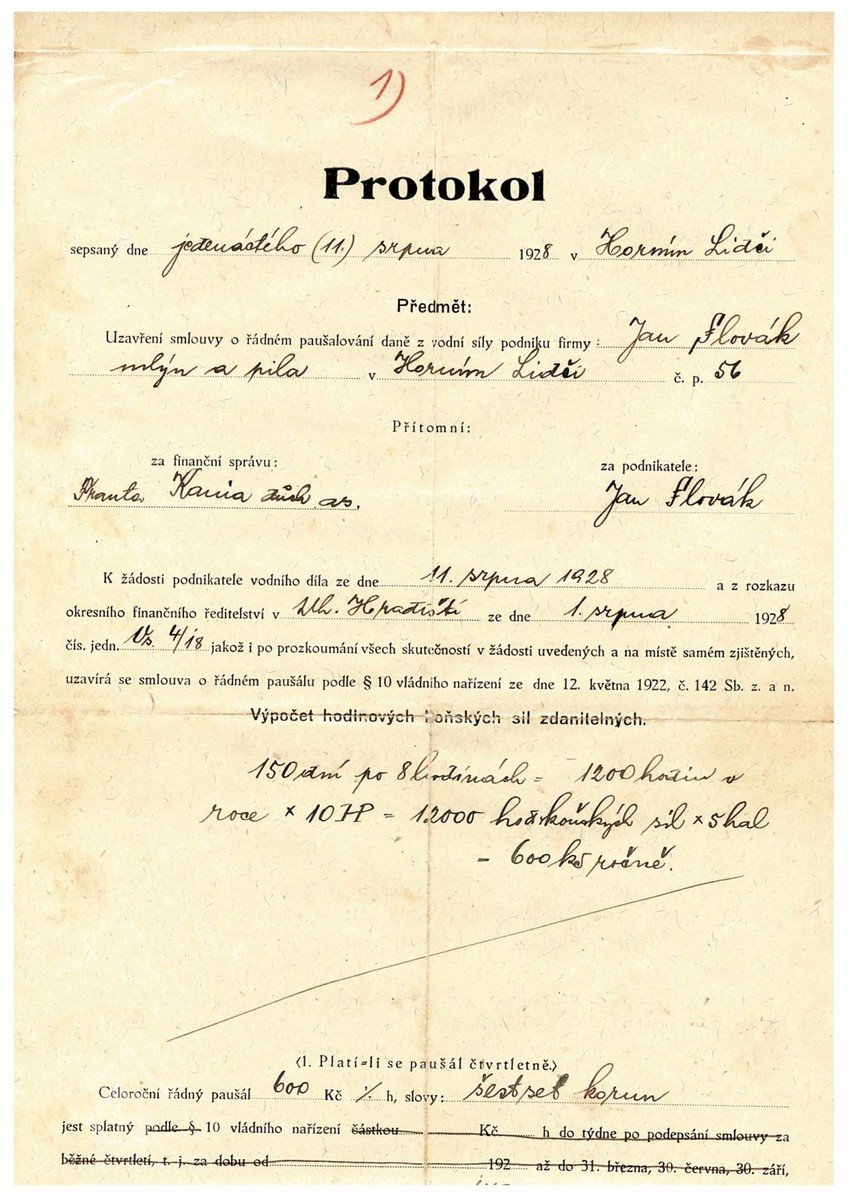 1)
Protokol
sepsaný dne jedenáctého (11.) srpna 1928 v Horním Lidči
Předmět:
Uzavření smlouvy o řádném paušalování daně z vodní síly podniku firmy: Jan Flovák
mlýn a pila v Horním Lidči č. p. 56
Přítomní:
za finanční správu: za podnikatele:
Franta Kania důch. as. Jan Flovák
K žádosti podnikatele vodního díla ze dne 11. srpna 1928 a z rozkazu
okresního finančního ředitelství v Uh. Hradišti ze dne 1. srpna 1928
čís. jedn. 4/18 jakož i po prozkoumání všech skutečností v žádosti uvedených a na místě samém zjištěných,
uzavírá se smlouva o řádném paušálu podle § 10 vládního nařízení ze dne 12. května 1922, č. 142 Sb. z. a n.
Výpočet hodinových koňských sil zdanitelných.
150 dní po 8 hodinách = 1200 hodin v
roce × 10 HP = 12000 hod. koňských sil × 5 hal
= 600 kč ročně.
(1. Platí-li se paušál čtvrtletně.)
Celoroční řádný paušál 600 Kč h, slovy: šestset korun
jest splatný podle § 10 vládního nařízení částkou Kč h do týdne po podepsání smlouvy za
běžné čtvrtletí, t. j. za dobu od 192 až do 31. března, 30. června, 30. září,